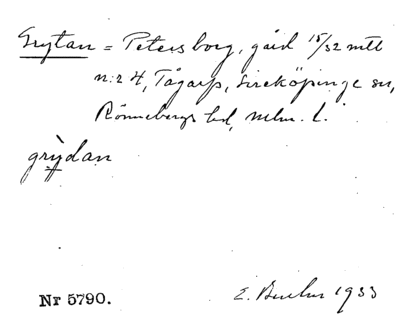 Grytan = Petersborg, gård 15/32 mtl
n:r 4, Tågarp, Sireköpinge sn,
Rönnebergs hd, Mlm. L.
grỳdan
Nr 5790.
E. 1933